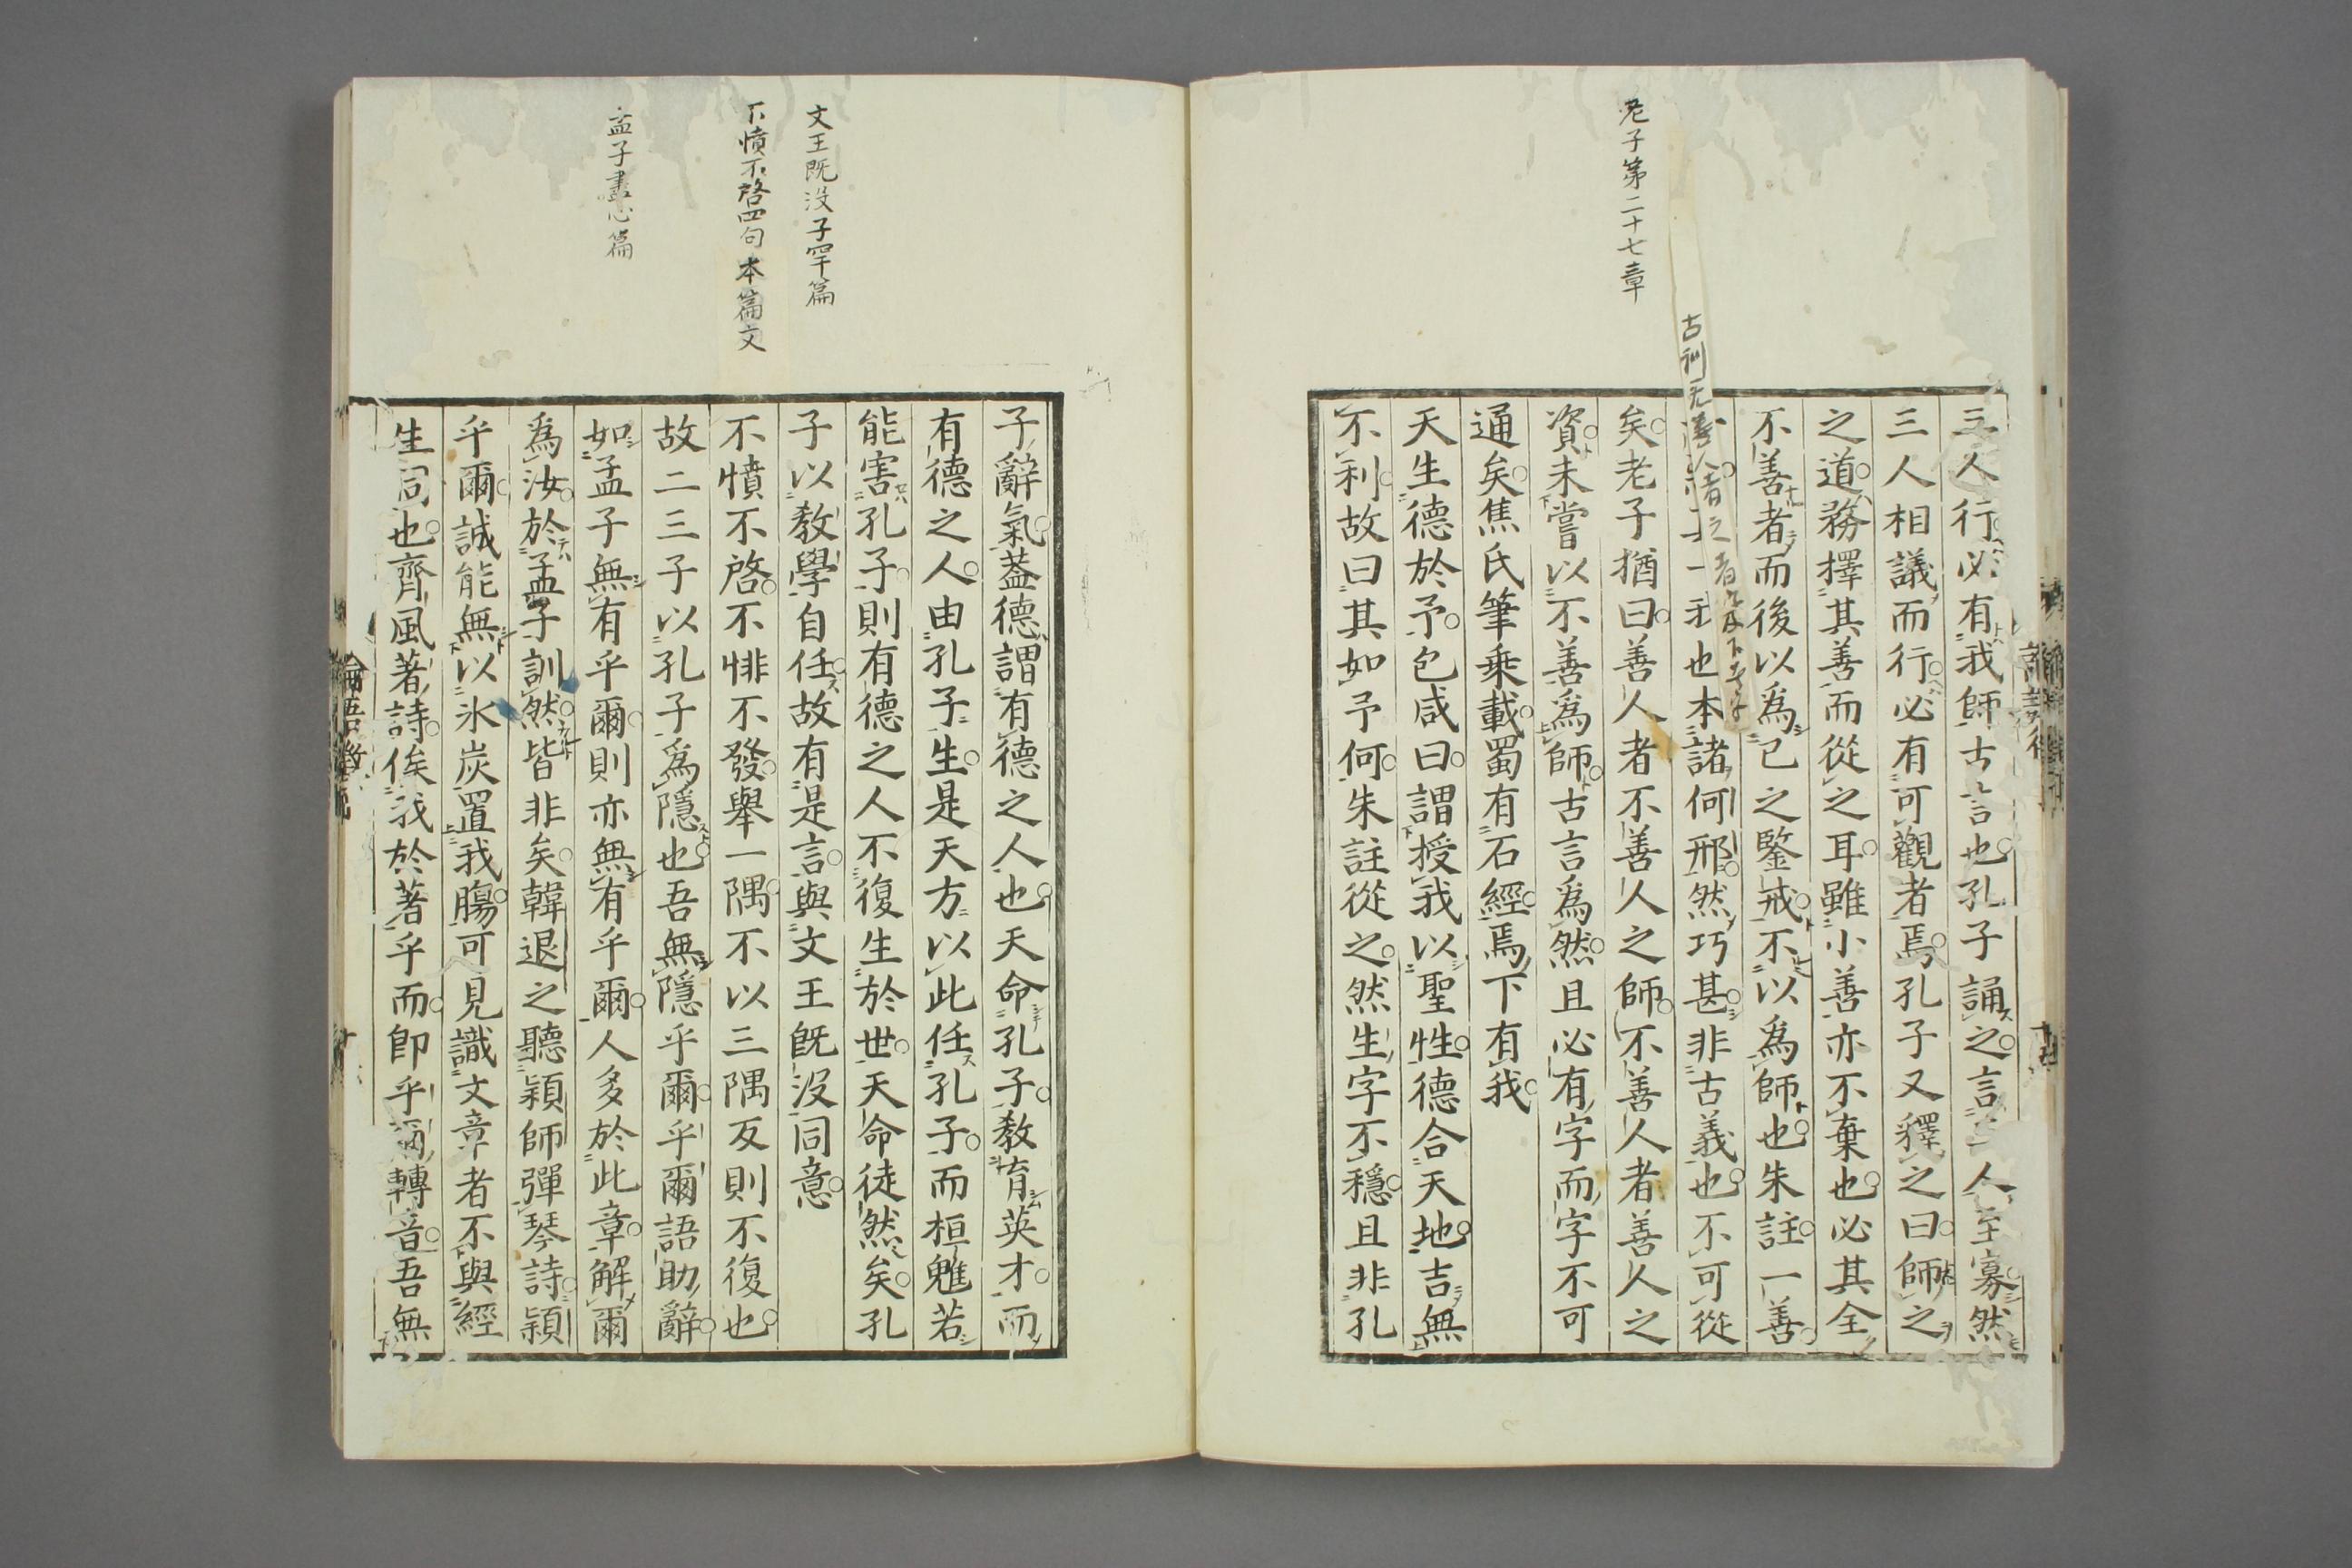 老子第二十七章
三人行必有我師古言也孔子誦之言三人至寡然
三人相議而行必有可觀者焉孔子又釋之曰師之
之道務擇其善而從之耳雖小善亦不棄也必其全
不善者而後以爲己之鑒戒不以爲師也朱註一善
一我也本諸何邢然巧甚非古義也不可從
矣老子猶曰善人者不善人之師不善人者善人之
資未嘗以不善爲師古言爲然且必有字而字不可
通矣焦氏筆乘載蜀有石經焉下有我
天生德於予包咸曰謂授我以聖性德合天地吉無
不利故曰其如予何朱註從之然生字不穩且非孔
文王既没子罕篇
不憤不啓四句本篇文
孟子盡心篇
子辭氣蓋德謂有德之人也天命孔子教育英才而
有德之人由孔子生是天方以此任孔子而桓魋若
能害孔子則有德之人不復生於世天命徒然矣孔
子以教學自任故有是言與文王既没同意
不憤不啓不悱不發舉一隅不以三隅反則不復也
故二三子以孔子爲隱也吾無隱乎爾乎爾語助辭
如孟子無有乎爾則亦無有乎爾人多於此章解爾
爲汝於孟子訓然皆非矣韓退之聽穎師彈琴詩穎
乎爾誠能無以氷炭置我膓可見識文章者不與經
生同也齊風著詩俟我於著乎而即乎爾轉音吾無